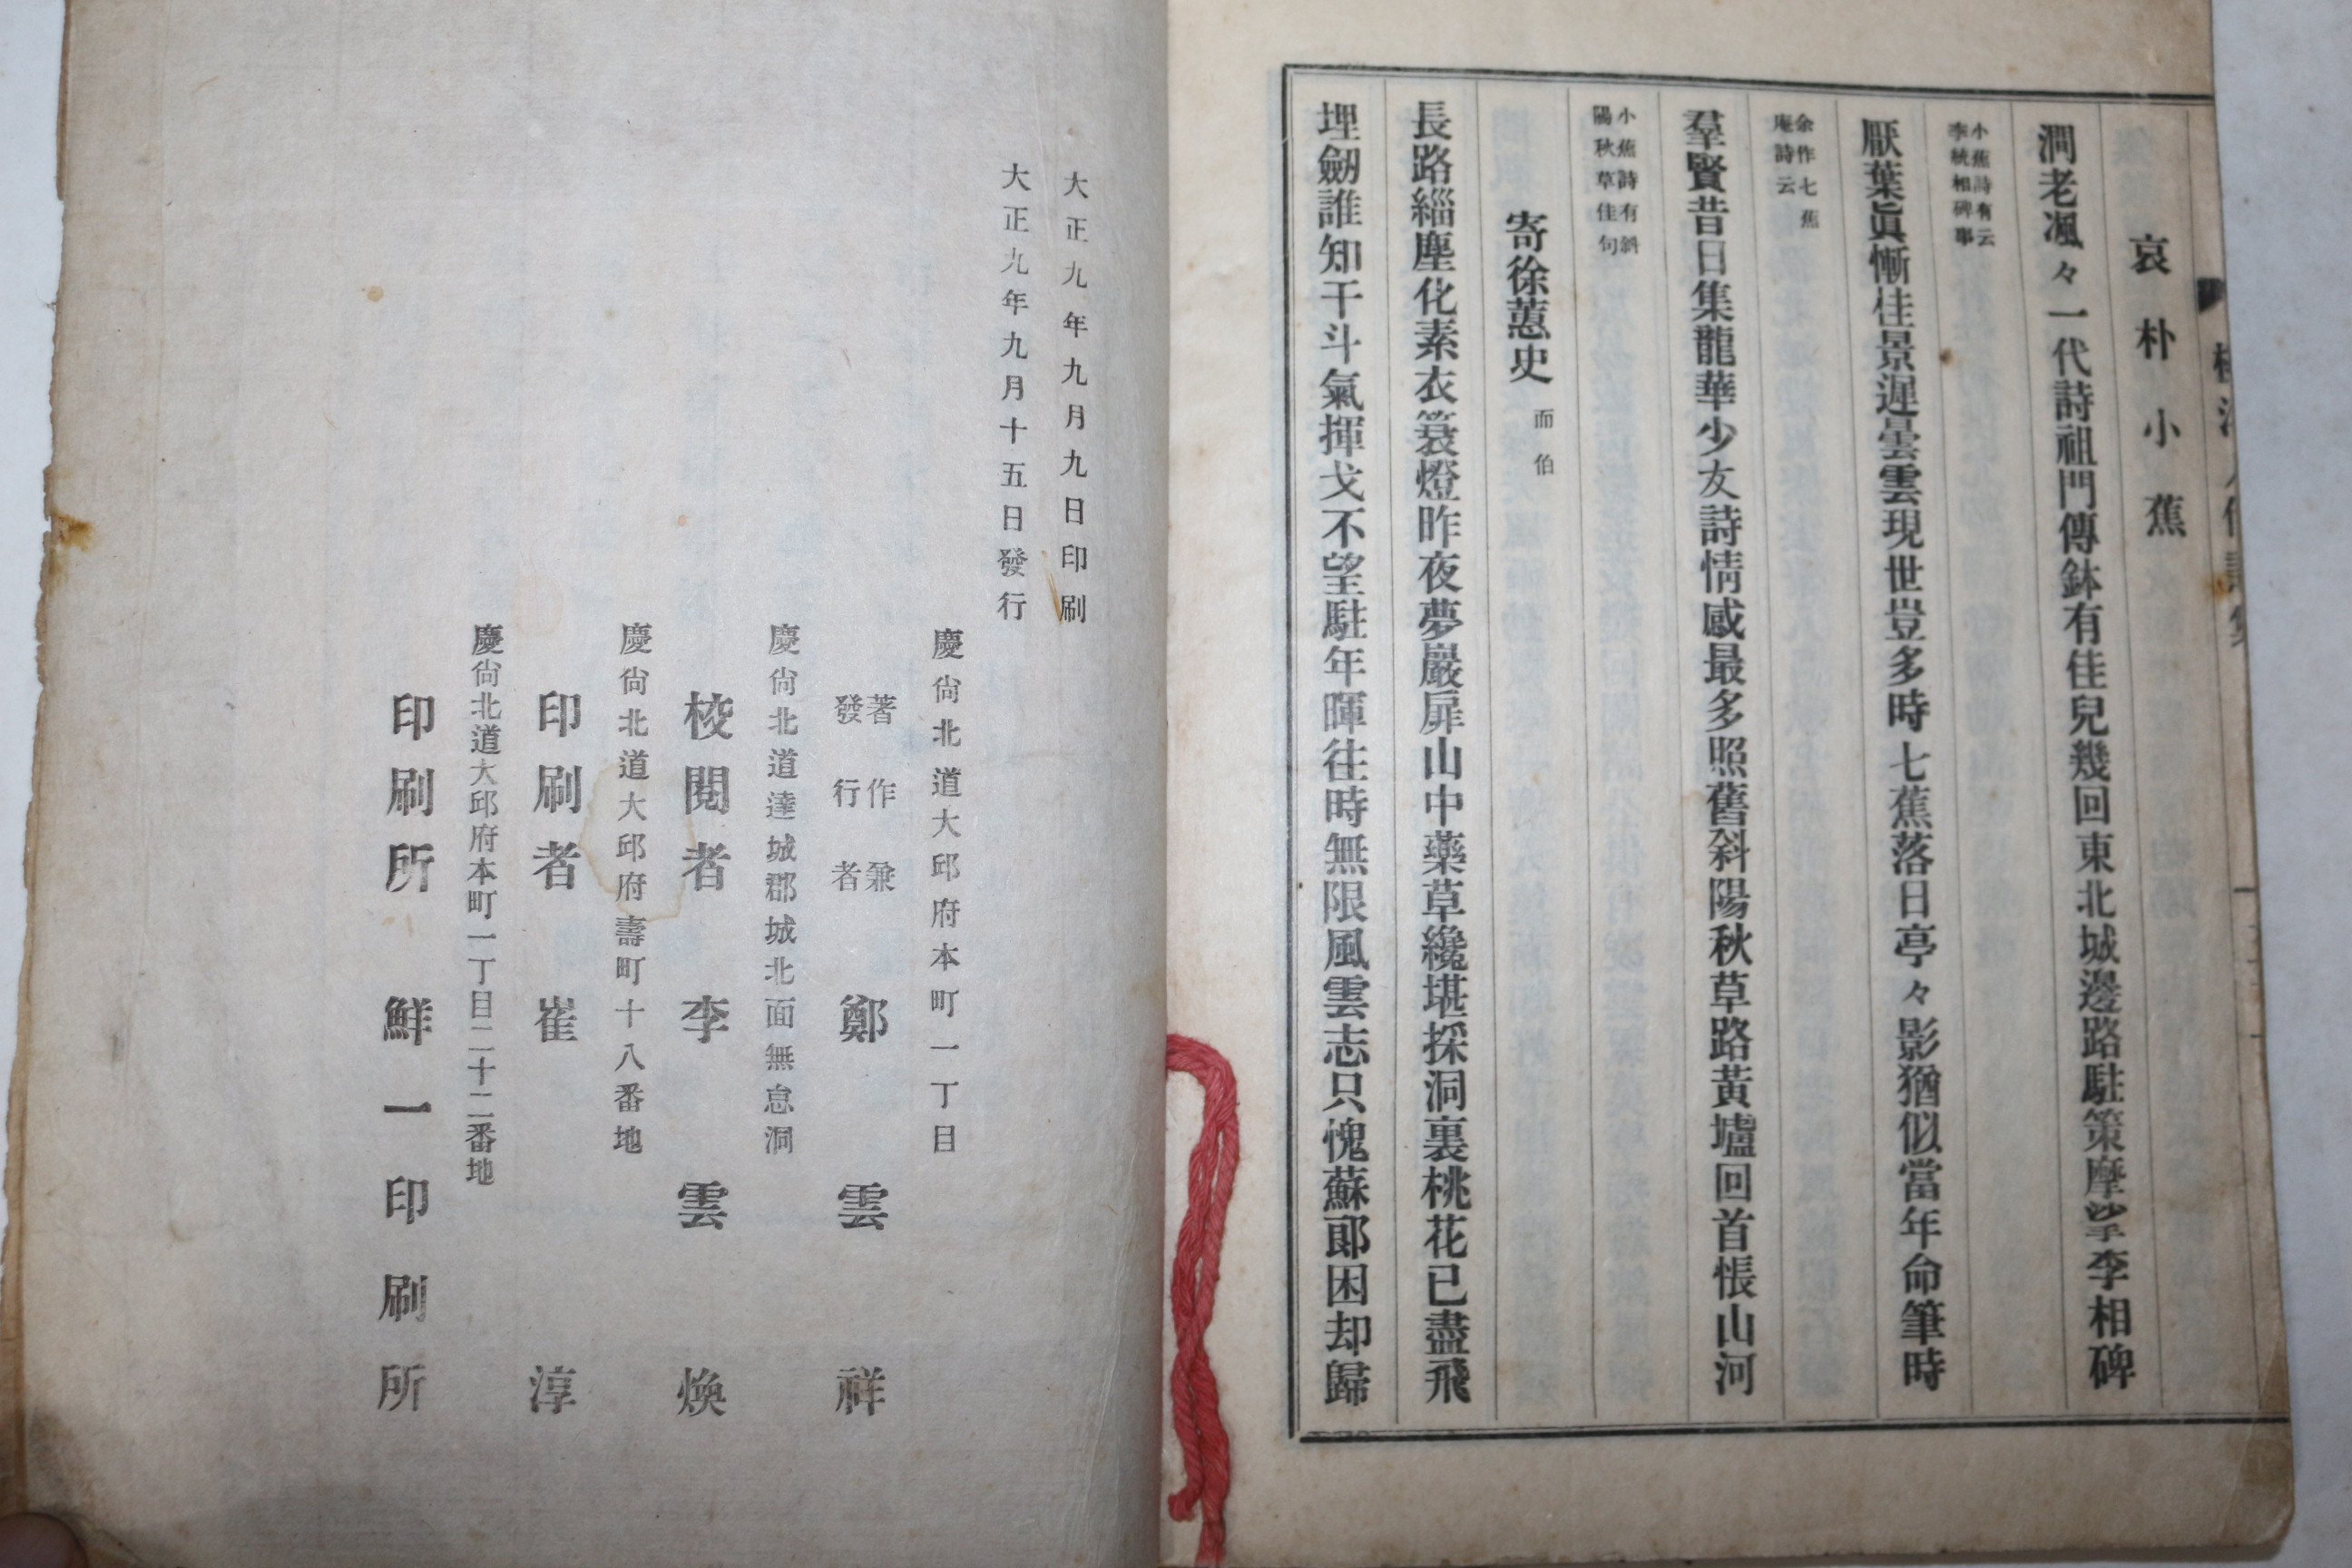 哀朴小蕉
澗老渢々一代詩祖門傳鉢有佳兒幾回東北城邊路駐策摩挲李相碑
小蕉詩有云
李統相碑事
厭葉眞慚佳景遲曇雲現世豈多時七蕉落日亭々影猶似當年命筆時
余作七蕉
庵詩云
羣賢昔日集龍華少友詩情感最多照舊斜陽秋草路黃壚回首悵山河
小蕉詩有斜
陽秋草佳句
寄徐蕙史 而伯
長路緇塵化素衣篝燈昨夜夢巖扉山中藥草纔堪採洞裏桃花已盡飛
埋劒誰知干斗氣揮戈不望駐年暉往時無限風雲志只愧蘇郞困却歸
大正九年九月九日印刷
大正九年九月十五日發行
慶尙北道大邱府本町一丁目
著作兼
發行者 鄭雲祥
慶尙北道達城郡城北面無怠洞
校閱者 李雲煥
慶尙北道大邱府壽町十八番地
印刷者 崔淳
慶尙北道大邱府本町一丁目二十二番地
印刷所 鮮一印刷所